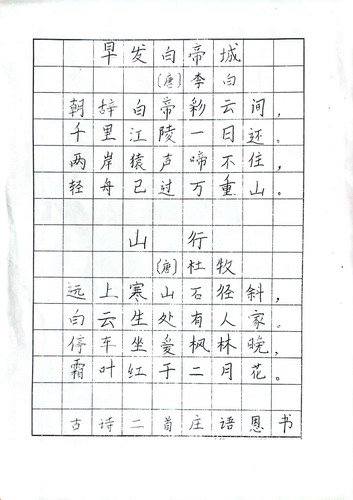 早发白帝城
(唐)李白
朝辞白帝彩云间，
千里江陵一日还。
两岸猿声啼不住，
轻舟已过万重山。
山行
(唐)杜牧
远上寒山石径斜，
白云生处有人家。
停车坐爱枫林晚，
霜叶红于二月花。
古诗二首庄语恩书